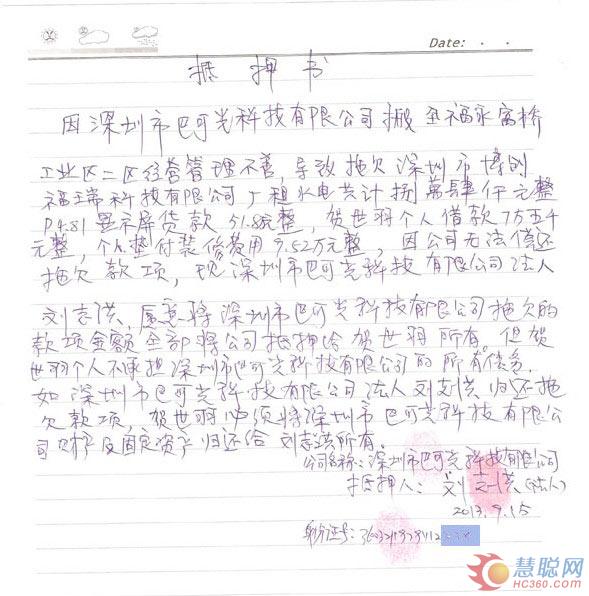 Date: . .
抵押书
因深圳市巴可光科技有限公司搬至福永富桥
工业区二区经营管理不善，导致拖欠深圳市博创
福瑞科技有限公司厂租水电共计捌萬肆仟元整
P4.81显示屏货款51.8元整，贺世羽个人借款7万五千
元整，个人垫付装修费用9.52万元整，因公司无法偿还
拖欠款项，现深圳市巴可光科技有限公司法人
刘志洪，愿意将深圳市巴可光科技有限公司拖欠的
款项金额全部将公司抵押给贺世羽所有。但贺
世羽个人不承担深圳市巴可光科技有限公司的所有债务，
如深圳市巴可光科技有限公司法人刘志洪归还拖
欠款项，贺世羽必须将深圳市巴可光科技有限公
司及固定资产归还给刘志洪所有。
公司名称：深圳市巴可光科技有限公司
抵押人：刘志洪（法人）
2013.9.15
身份证号：
慧聪网
HC360.com